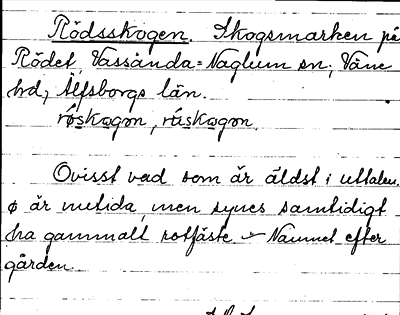 Rödsskogen. Skogsmarken på
Rödet, Vassända=Naglum sn; Väne
hd, Älfsborgs län.
røskogon, råskogon.
Ovisst vad som är äldst i uttalen.
ø är nutida, men synes samtidigt
ha gammalt rotfäste. Namnet efter
gården.